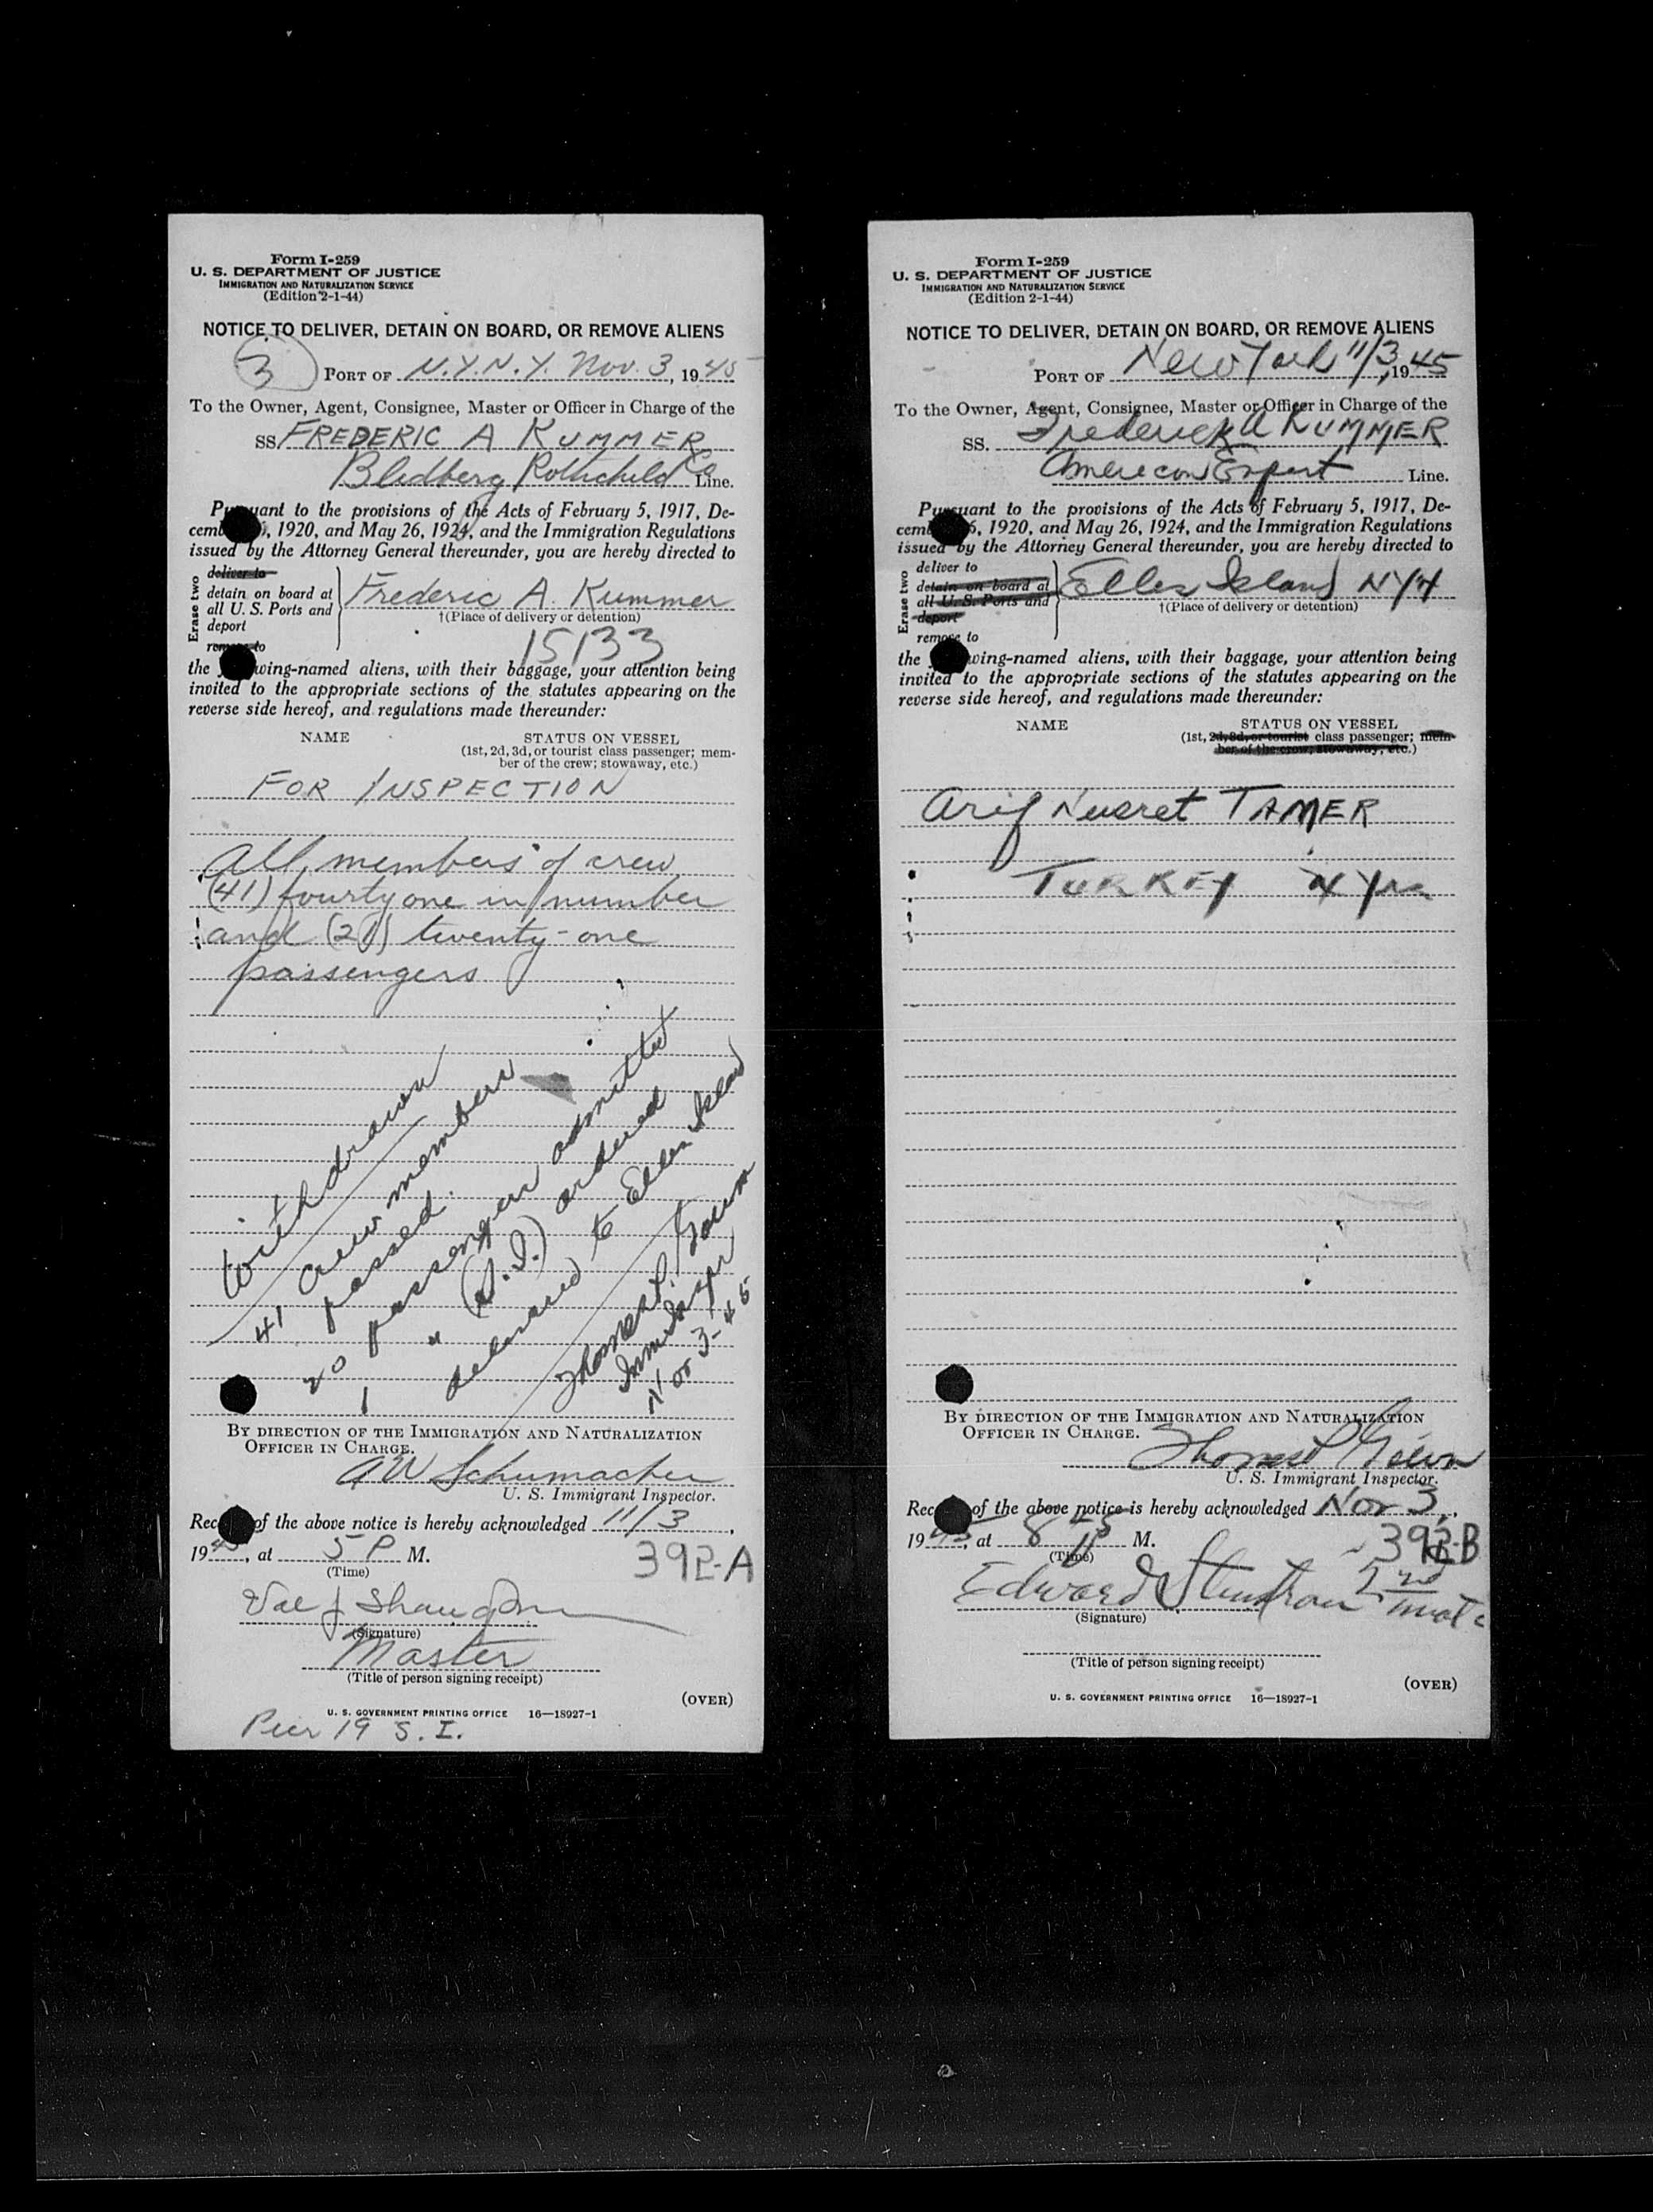 Form I-259
U. S. DEPARTMENT OF JUSTICE
IMMIGRATION AND NATURALIZATION SERVICE
(Edition 2-1-44)
NOTICE TO DELIVER, DETAIN ON BOARD, OR REMOVE ALIENS
3
PORT OF N.Y.N.Y. Nov. 3, 1945
To the Owner, Agent, Consignee, Master or Officer in Charge of the
SS. FREDERIC A KUMMER
Blidberg Rothchild Co Line.
Pursuant to the provisions of the Acts of February 5, 1917, De-
cember , 1920, and May 26, 1924, and the Immigration Regulations
issued by the Attorney General thereunder, you are hereby directed to
Erase two
deliver to
detain on board at
all U. S. Ports and
deport
remove to
Frederic A. Kummer
†(Place of delivery or detention)
15133
the following-named aliens, with their baggage, your attention being
invited to the appropriate sections of the statutes appearing on the
reverse side hereof, and regulations made thereunder:
NAME STATUS ON VESSEL
(1st, 2d, 3d, or tourist class passenger; mem-
ber of the crew; stowaway, etc.)
FOR INSPECTION
All members of crew
(41) fourty one in number
and (21) twenty-one
passengers
Withdrawn
41 crew members
passed.
20 passengers admitted
1 " (S.I.) ordered
delivered to Ellis Island
Thomas P.
Imm Inspr
Nov 3-45
BY DIRECTION OF THE IMMIGRATION AND NATURALIZATION
OFFICER IN CHARGE.
A W Schumacher
U. S. Immigrant Inspector.
Receipt of the above notice is hereby acknowledged 11/3,
1945, at 5 P M.
(Time)
392-A
Val J
(Signature)
Master
(Title of person signing receipt)
(OVER)
U. S. GOVERNMENT PRINTING OFFICE 16—18927-1
Pier 19 S. I.
Form I-259
U. S. DEPARTMENT OF JUSTICE
IMMIGRATION AND NATURALIZATION SERVICE
(Edition 2-1-44)
NOTICE TO DELIVER, DETAIN ON BOARD, OR REMOVE ALIENS
PORT OF New York 11/3, 1945
To the Owner, Agent, Consignee, Master or Officer in Charge of the
SS. Frederick A KUMMER
American Export Line.
Pursuant to the provisions of the Acts of February 5, 1917, De-
cember 5, 1920, and May 26, 1924, and the Immigration Regulations
issued by the Attorney General thereunder, you are hereby directed to
Erase two
deliver to
detain on board at
all U. S. Ports and
deport
remove to
Ellis Island NYH
†(Place of delivery or detention)
the following-named aliens, with their baggage, your attention being
invited to the appropriate sections of the statutes appearing on the
reverse side hereof, and regulations made thereunder:
NAME STATUS ON VESSEL
(1st, 2d, 3d, or tourist class passenger; mem-
ber of the crew; stowaway, etc.)
Arif Nusret TAMER
TURKEY
BY DIRECTION OF THE IMMIGRATION AND NATURALIZATION
OFFICER IN CHARGE.
Thomas P
U. S. Immigrant Inspector.
Receipt of the above notice is hereby acknowledged Nov 3,
1945, at 8 M.
(Time)
392-B
Edward 2nd mate
(Signature)
(Title of person signing receipt)
(OVER)
U. S. GOVERNMENT PRINTING OFFICE 16—18927-1